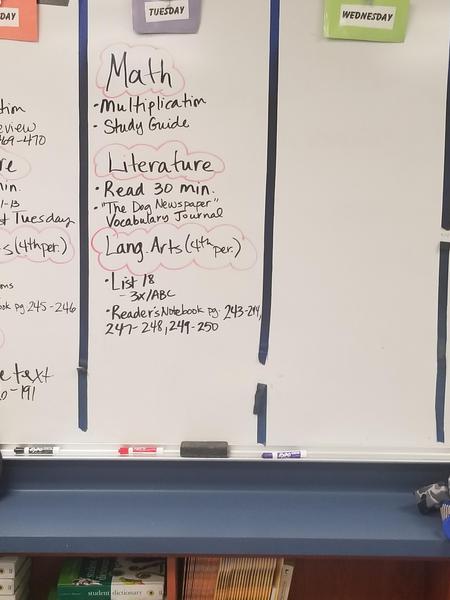 DAY
TUESDAY
WEDNESDAY
Math
• Multiplication
• Study Guide
Literature
• Read 30 min.
• "The Dog Newspaper"
Vocabulary Journal
Lang. Arts (4th per.)
• List 18
- 3x/ABC
• Reader's Notebook pg. 243-244,
247-248, 249-250
eview
69-470
min.
1-13
st Tuesday
s (4th per.)
ook pg. 245-246
e text
0-191
EXPO
EXPO
student dictionary